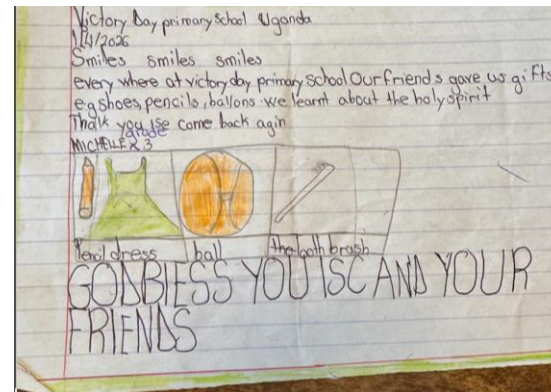 Victory Day primary school Uganda
1/4/2026
Smiles smiles smiles
every where at victory day primary school Our friends gave us gifts
eg shoes, pencils, ballons we learnt about the holy spirit
Thalk you come back agin
grade
MICHELLE R 3
Pencil dress ball the both brash
GODBIESS YOU ISC AND YOUR
FRIENDS